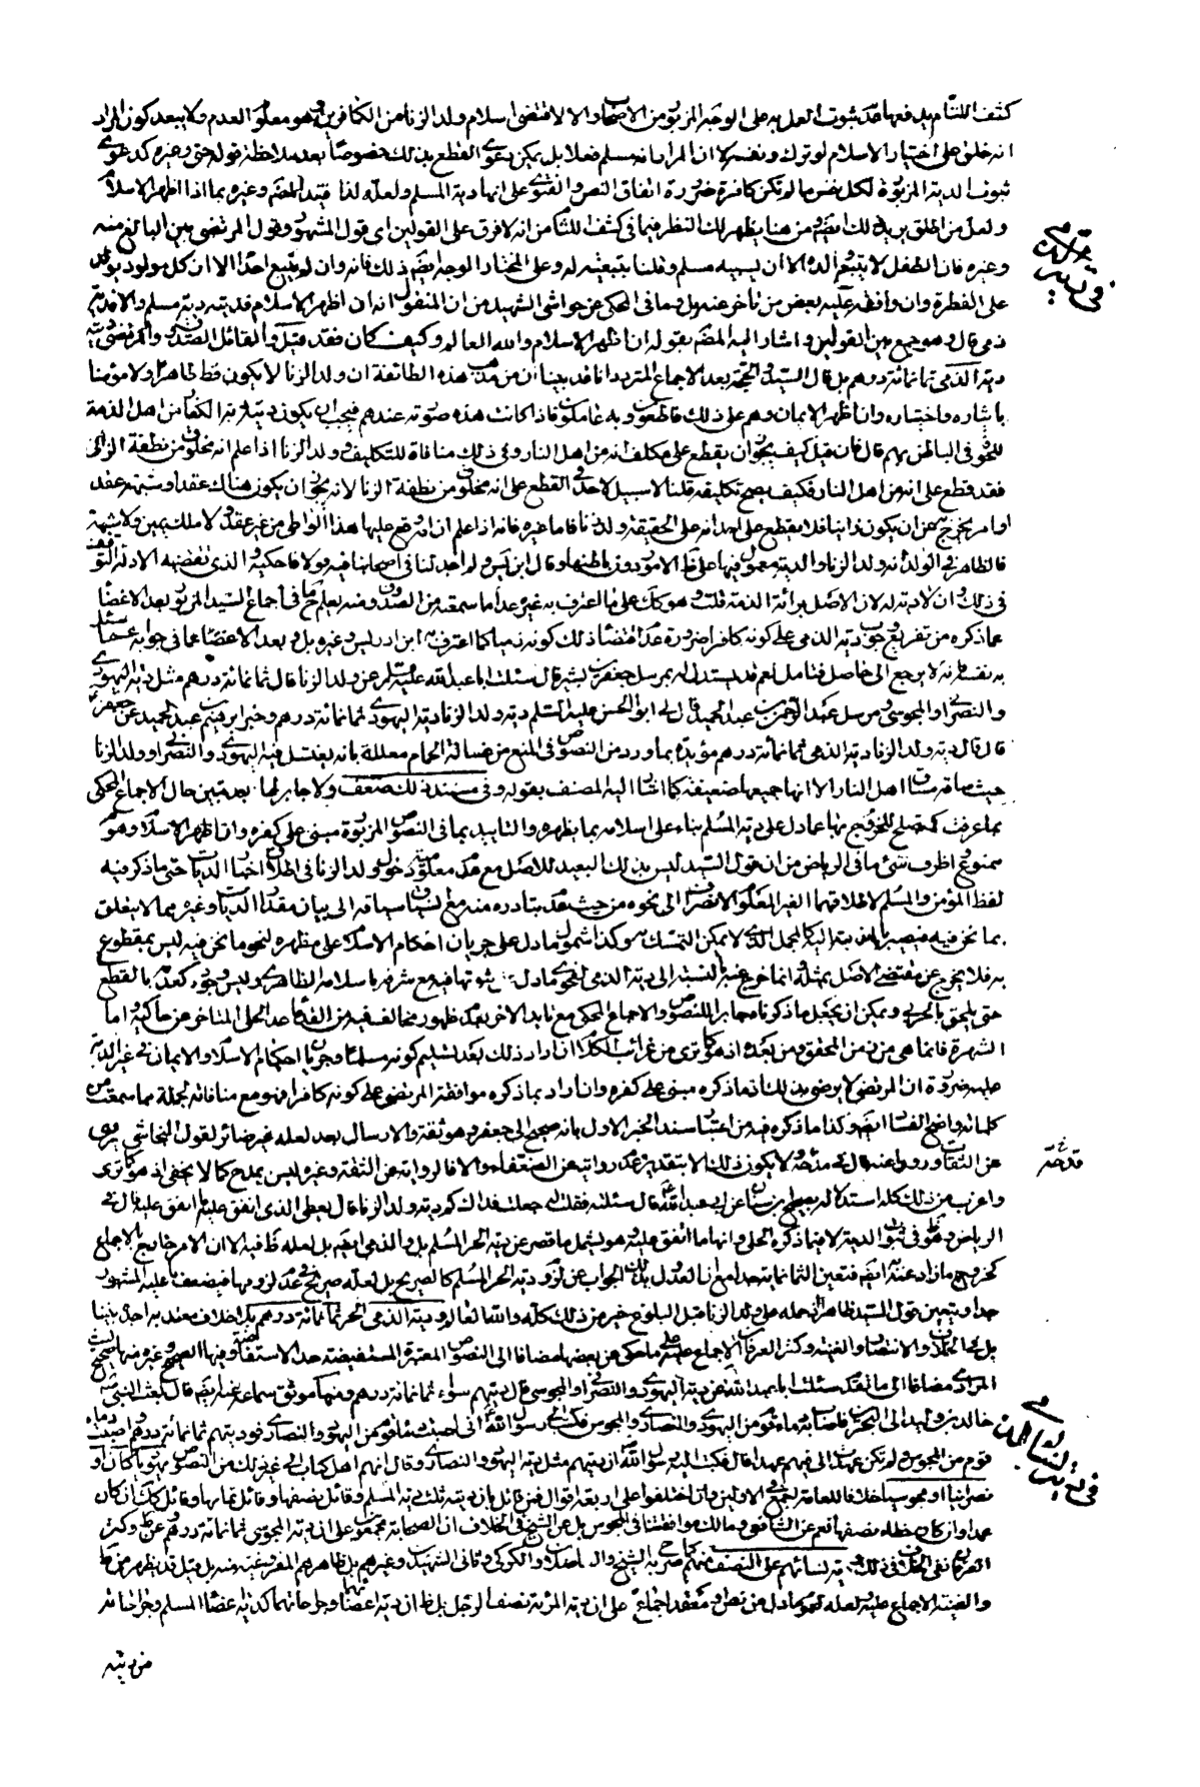 كشف اللثام يدفعها عدم ثبوت العمل به على الوجه المزبور من الاصحاب والا لاقتضى اسلام ولد الزنا من الكافرين وهو معلوم العدم ولا يبعد كون المراد
انه خلق على اختيار الاسلام لو ترك ونفسه لا ان المراد انه مسلم فعلا بل يمكن دعوى القطع بذلك خصوصا بعد ملاحظة قوله حتى وغيره كدعوى
ثبوت الدية المزبورة لكل نفس ما لم تكن كافرة ضرورة اتفاق النص والفتوى على انها دية المسلم ولعله لذا قيد المصنف وغيره بما اذا اظهر الاسلام
ولعل من اطلق يريد ذلك ايضا ومن هنا يظهر لك النظر فيما في كشف اللثام من انه لا فرق على القولين اي قول المشهور وقول المرتضى بين البالغ منه
وغيره فان الطفل لا يتبع الده الا ان يسبيه مسلم وقلنا بتبعيته له وعلى المختار الوجه ايضا ذلك فانه وان لم يتبع احدا الا ان كل مولود يولد
على الفطرة وان وافقه عليه بعض من تأخر عنه بل وما في المحكي عن حواشي الشهيد من ان المنقول انه ان اظهر الاسلام فديته دية مسلم والا فدية
ذمي قال وهو جمع بين القولين واشار اليه المصنف بقوله ان اظهر الاسلام والله العالم وكيف كان فقد قيل والقائل الصدوق والمرتضى دية
دية الذمي ثمانمائة درهم بل قال السيد والحجة بعد الاجماع المتردد انا قد بينا ان من مذهب هذه الطائفة ان ولد الزنا لا يكون قط طاهرا ولا مؤمنا
بايثاره واختياره وان اظهر الايمان وهم على ذلك قاطعون وبه عاملون فاذا كانت هذه صورته عندهم فيجب ان يكون ديته دية الكفار من اهل الذمة
للحوقه في الباطن بهم قال فان قيل كيف يجوز ان يقطع على مكلف انه من اهل النار وفي ذلك منافاة للتكليف وولد الزنا اذا علم انه مخلوق من نطفة الزاني
فقد قطع على انه من اهل النار فكيف يصح تكليفه قلنا لا سبيل لاحد في القطع على انه مخلوق من نطفة الزنا لانه يجوز ان يكون هناك عقد او شبهة عقد
او امر يخرج عن ان يكون زانيا فلا يقطع على احد انه على الحقيقة ولد زنا فاما غيره فانه اذا علم ان امه وقع عليها هذا الواطئ من غير عقد ولا ملك يمين ولا شبهة
فالظاهر في الولد انه ولد الزنا والدية معمول فيها على ظاهر الامور دون باطنها وقال ابن ادريس ولم اجد لنا في اصحابنا فيه قولا فاحكيه والذي تقتضيه الادلة التوقف
في ذلك وان لا دية له لان الاصل براءة الذمة قلت وهو كك على ما اعترف به غير عدا ما سمعته من الصدوق ومنه يعلم ما في اجماع السيد المزبور بعد الاغضاء
عما ذكره من تفريع وجوب دية الذمي على كونه كافرا ضرورة عدم اقتضاء ذلك كونه ذميا كما اعترف به ابن ادريس وغيره بل وبعد الاغضاء عما في جوابه عما سئل
به نفسه فانه لا يرجع الى حاصل فتأمل نعم قد يستدل له بمرسل جعفر بن بشير قال سئلت ابا عبد الله عليه السلم عن ولد الزنا قال ثمانمائة درهم مثل دية اليهودي
والنصراني والمجوسي ومرسل عبد الرحمن بن عبد الحميد قال لي ابو الحسن عليه السلم دية ولد الزنا دية اليهودي ثمانمائة درهم وخبر ابراهيم بن عبد الحميد عن جعفر ع
قال قال دية ولد الزنا دية الذمي ثمانمائة درهم مؤيدة بما ورد من النصوص في المنع من غسالة الحمام معللة بانه يغتسل فيه اليهودي والنصراني وولد الزنا
اهل النار الا انها جميعها ضعيفة كما اشار اليه المصنف بقوله وفي مستند ذلك ضعف ولا جابر لها بعد تبين حال الاجماع المحكي
بما عرفت كي تصلح للخروج بها عما دل على دية المسلم بناء على اسلامه بما يظهره والتأييد بما في النصوص المزبورة مبني على كفره وان اظهر الاسلام وهو
ممنوع اظرف شئ ما في الرياض من ان قول السيد ليس بذلك البعيد للاصل مع عدم معلومية دخول ولد الزنا في اطلاق اخبار الديات حتى ما ذكر فيه
لفظ المؤمن والمسلم لاطلاقهما الغير المعلوم الانصراف الى نحوه من حيث عدم تبادره منه مع ان سياقه الى بيان مقدار الديات وغيره مما لا يتعلق
بما نحن فيه فيصير بالنسبة اليه كالمجمل الذي لا يمكن التمسك به وكذا شمول ما دل على جريان احكام الاسلام على مظهره لنحو ما نحن فيه ليس بمقطوع
به فلا يخرج عن مقتضى الاصل بمثله وانما خرج عنه بالنسبة الى دية الذمي لفحوى ما دل على ثبوتها فيه مع شرفه باسلامه الظاهري وليس وجوده كعدمه بالقطع
حتى يلحق بالحربي ويمكن ان يجعل ما ذكرناه جابرا للنصوص والاجماع المحكي مع تأيد الاخير بعدم ظهور مخالف فيه من القدماء عدا الحلي المتأخر عن حاكيه واما
الشهرة فانما هي من زمن المحقق ومن بعده اذ هو كما ترى من غرائب الكلام اذا اراد ذلك بعد تسليم كونه مسلما وجريان احكام الاسلام والايمان في غير الدية
عليه ضرورة ان المرتضى لا يرضى بذلك اذ ما ذكره مبني على كفره وان اراد بما ذكره موافقة المرتضى على كونه كافرا فهو مع منافاته لجملة مما سمعت من
كلماته واضح الفساد ايضا وكذا ما ذكره فيه من اعتبار سند الخبر الاول بانه صحيح الى جعفر وهو ثقة والارسال بعد لعله غير ضائر لقول النجاشي يروي
عن الثقات ورووا عنه قال في مدحه ولا يكون ذلك الا بتقدير عدم روايته عن الضعفاء والا فالرواية عن الثقة وغيره ليس بمدح كما لا يخفى اذ هو كما ترى
واغرب من ذلك كله استدلاله بصحيح ابن سنان عن ابي عبد الله قال سئلته فقلت له جعلت فداك كم دية ولد الزنا قال يعطى الذي انفق عليه ما انفق عليه قال في
الرياض وهو ظاهر في ثبوت الدية لا فيما ذكره الحلي وانها ما انفق عليه وهو يشمل ما قصر عن دية الحر المسلم بل والذمي ايضا بل لعله ظاهر فيه الا ان الامر خارج بالاجماع
كخروج ما زاد عنه ايضا فتعين الثمانمائة جدا مع ان العدول بذلك الجواب عن لزوم دية الحر المسلم كالصريح بل لعله صريح في عدم لزومها فيضعف ما عليه المشهور
جدا ويتعين قول السيد ظاهرا حمله على ولد الزنا قبل البلوغ خير من ذلك كله والله العالم ودية الذمي الحر ثمانمائة درهم بلا خلاف معتد به اجده بيننا
بل في الخلاف والانتصار والغنية وكنز العرفان الاجماع عليه على ما حكي عن بعضها مضافا الى النصوص المعتبرة المستفيضة حد الاستفاضة ومنها الصحيح وغيره
المرادي مضافا الى ما تقدم سئلت ابا عبد الله عن دية اليهودي والنصراني والمجوسي قال ديتهم سواء ثمانمائة درهم ومنها موثق سماعة عنه ايضا قال بعث النبي ص
خالد بن وليد الى البحرين فاصاب بها دماء قوم من اليهود والنصارى والمجوس فكتب الى رسول الله اني اصبت دماء قوم من اليهود والنصارى فوديتهم ثمانمائة درهم واصبت دماء
قوم من المجوس ولم تكن عهدت الي فيهم عهدا قال فكتب اليه رسول الله ان ديتهم مثل دية اليهود والنصارى وقال انهم اهل كتاب الى غير ذلك من النصوص يهوديا كان او
نصرانيا او مجوسيا خلافا للعامة لجمع في الاولين فان اختلفوا على اربعة اقوال فمن قائل بان ديته ثلث دية المسلم وقائل نصفها وقائل تمامها وقائل كذلك ان كان
عمدا وان كان خطاء نصفها نعم عن الشافعي ومالك موافقتنا في المجوس بل عن الشيخ في الخلاف ان الصحابة مجمعون على ان دية المجوسي ثمانمائة درهم وعن ظاهر وكنز
العرفان نفي الخلاف في ذلك ودية نسائهم على النصف منهم كما صرح به الشيخ وال حمزة وادريس والكركي وثاني الشهيدين وغيرهم بل ظاهرهم المفروغية منه بل قيل قد يظهر من ظاهر
والغنية الاجماع عليه ولعله لعموم ما دل من نص او معقد اجماع على ان دية المرأة نصف الرجل بل ظاهر ان دية اعضائهما وجراحاتهما كدية اعضاء المسلم وجراحاته
من ديته
في دية الذمي
قد حقه